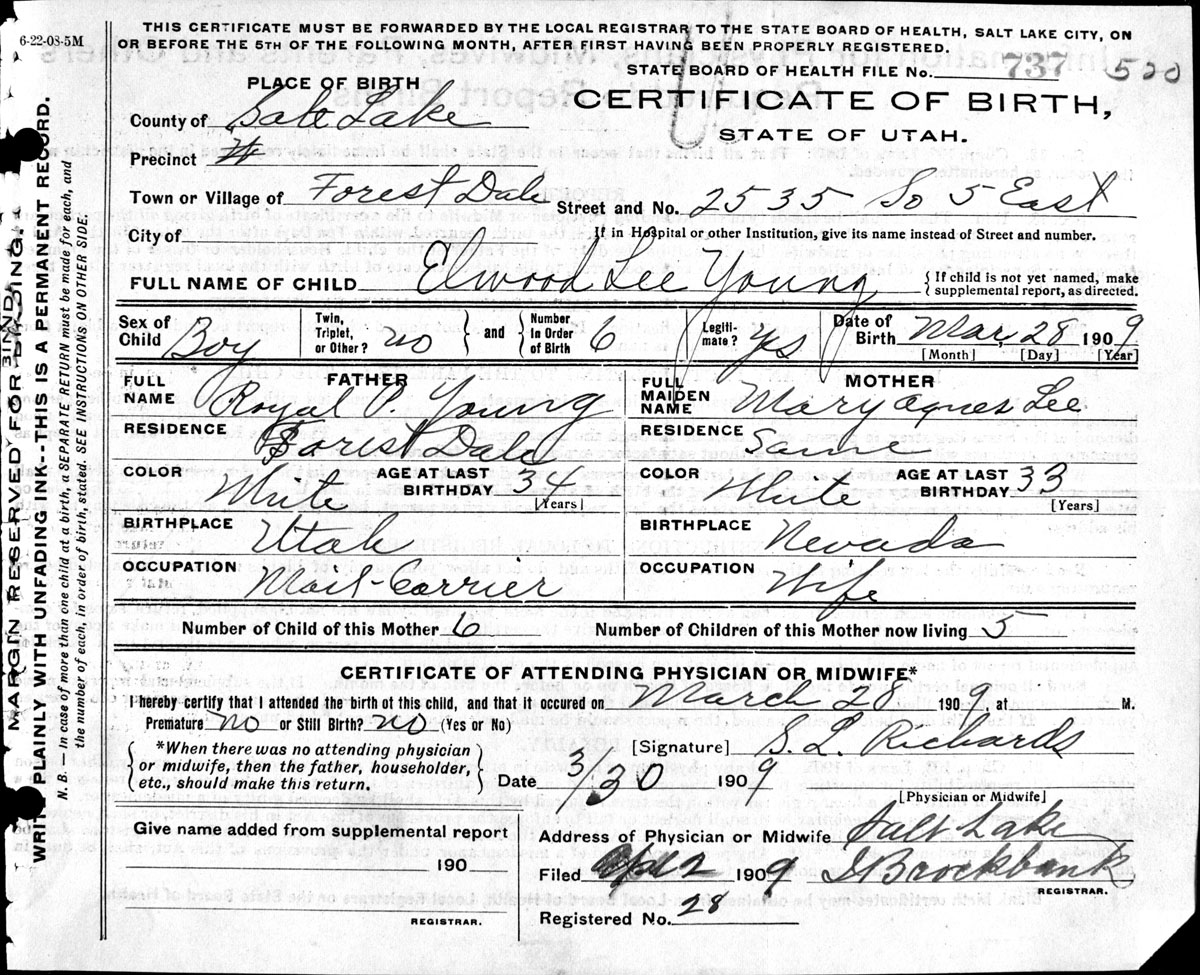 THIS CERTIFICATE MUST BE FORWARDED BY THE LOCAL REGISTRAR TO THE STATE BOARD OF HEALTH, SALT LAKE CITY, ON
OR BEFORE THE 5TH OF THE FOLLOWING MONTH, AFTER FIRST HAVING BEEN PROPERLY REGISTERED.
6-22-08-5M
STATE BOARD OF HEALTH FILE No. 737 500
PLACE OF BIRTH
CERTIFICATE OF BIRTH,
STATE OF UTAH.
County of Salt Lake
Precinct
Town or Village of Forest Dale Street and No. 2535 So 5 East
City of If in Hospital or other Institution, give its name instead of Street and number.
FULL NAME OF CHILD Elwood Lee Young {If child is not yet named, make supplemental report, as directed.
Sex of Child Boy Twin, Triplet, or Other? no } and { Number in Order of Birth 6 Legiti-mate? yes Date of Birth Mar, 28 1909
[Month] [Day] [Year]
FATHER
FULL NAME Royal P. Young
RESIDENCE Forest Dale
COLOR White AGE AT LAST BIRTHDAY 34 [Years]
BIRTHPLACE Utah
OCCUPATION Mail-Carrier
MOTHER
FULL MAIDEN NAME Mary Agnes Lee
RESIDENCE Sam
COLOR White AGE AT LAST BIRTHDAY 33 [Years]
BIRTHPLACE Nevada
OCCUPATION Wife
Number of Child of this Mother 6 Number of Children of this Mother now living 5
CERTIFICATE OF ATTENDING PHYSICIAN OR MIDWIFE*
I hereby certify that I attended the birth of this child, and that it occured on March 28 1909, at M.
Premature? no or Still Birth? no (Yes or No)
{*When there was no attending physician
or midwife, then the father, householder,
etc., should make this return.}
[Signature] S. L. Richards
Date 3/30 1909
[Physician or Midwife]
Give name added from supplemental report
190
REGISTRAR.
Address of Physician or Midwife Salt Lake
Filed Apr 2 1909 Brockbank
REGISTRAR.
Registered No. 28
MARGIN RESERVED FOR BINDING.
BIND
WRITE PLAINLY WITH UNFADING INK--THIS IS A PERMANENT RECORD.
N. B. — In case of more than one child at a birth, a SEPARATE RETURN must be made for each, and
the number of each, in order of birth, stated. SEE INSTRUCTIONS ON OTHER SIDE.